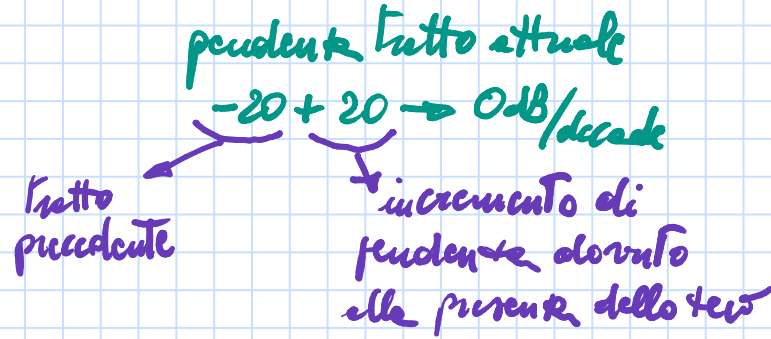 pendenza tratto attuale
-20 + 20 → 0 dB/decade
tratto
precedente
incremento di
pendenza dovuto
alla presenza dello zero